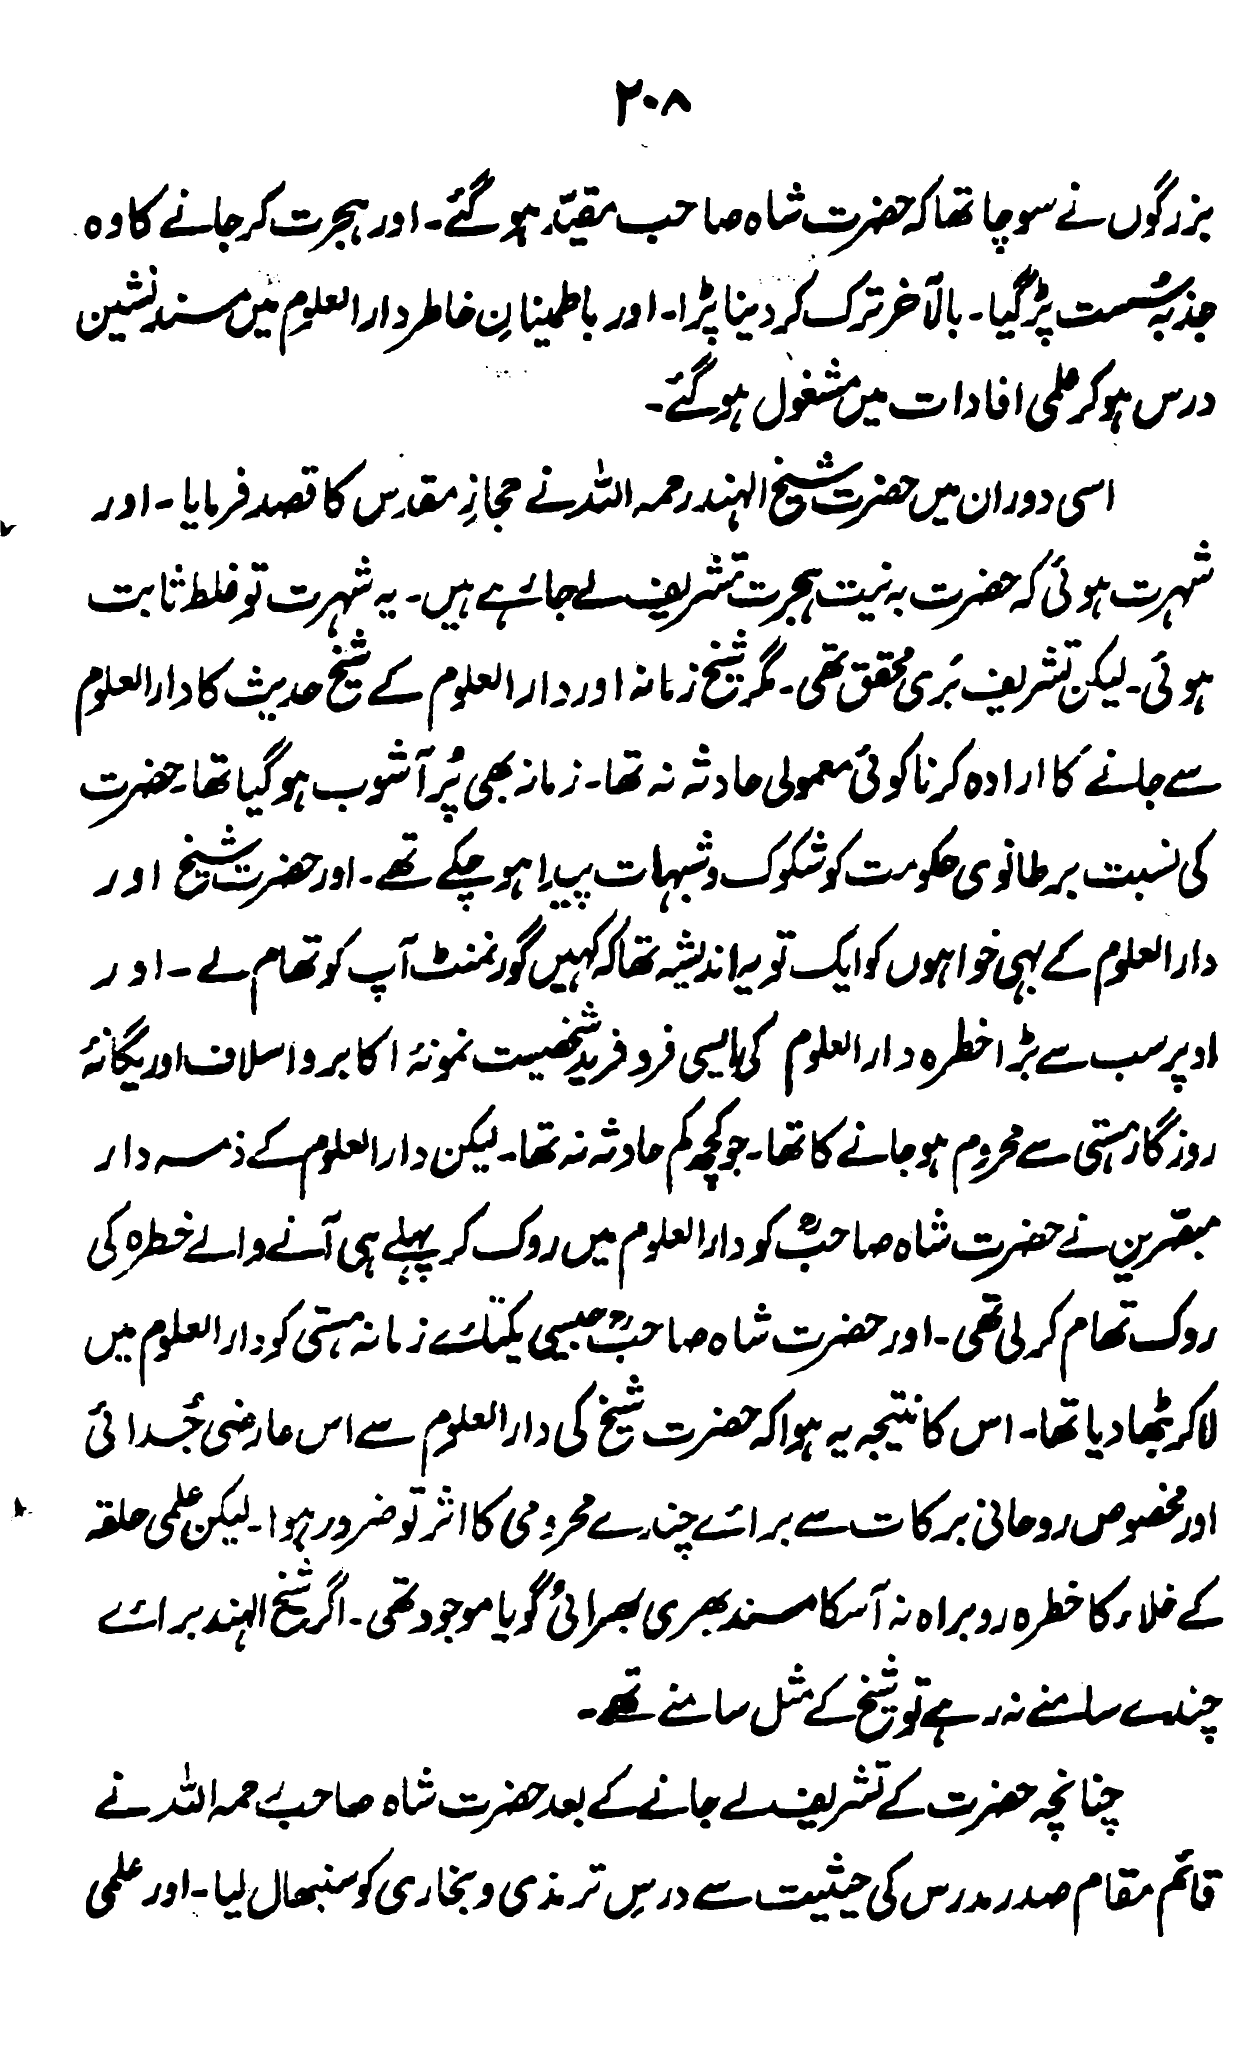 ۲۰۸
بزرگوں نے سوچا تھا کہ حضرت شاہ صاحب مقیّد ہو گئے۔ اور ہجرت کر جانے کا وہ
جذبہ سُست پڑ گیا۔ بالآخر ترک کر دینا پڑا۔ اور باطمینانِ خاطر دار العلوم میں مسند نشین
درس ہو کر علمی افادات میں مشغول ہو گئے۔
اسی دوران میں حضرت شیخ الہند رحمہ اللہ نے حجازِ مقدس کا قصد فرمایا۔ اور
شہرت ہوئی کہ حضرت بہ نیت ہجرت تشریف لے جا رہے ہیں۔ یہ شہرت تو غلط ثابت
ہوئی۔ لیکن تشریف بَری محقق تھی۔ مگر شیخ زمانہ اور دار العلوم کے شیخ حدیث کا دار العلوم
سے جانے کا ارادہ کرنا کوئی معمولی حادثہ نہ تھا۔ زمانہ بھی پُر آشوب ہو گیا تھا۔ حضرت
کی نسبت برطانوی حکومت کو شکوک و شبہات پیدا ہو چکے تھے۔ اور حضرت شیخ اور
دار العلوم کے بہی خواہوں کو ایک تو یہ اندیشہ تھا کہ کہیں گورنمنٹ آپ کو تھام لے۔ اور
اوپر سب سے بڑا خطرہ دار العلوم کی ایسی فرد فرید شخصیت نمونۂ اکابر و اسلاف اور یگانۂ
روزگار ہستی سے محروم ہو جانے کا تھا۔ جو کچھ کم حادثہ نہ تھا۔ لیکن دار العلوم کے ذمہ دار
مبصّرین نے حضرت شاہ صاحبؒ کو دار العلوم میں روک کر پہلے ہی آنے والے خطرہ کی
روک تھام کر لی تھی۔ اور حضرت شاہ صاحبؒ جیسی یکتائے زمانہ ہستی کو دار العلوم میں
لا کر بٹھا دیا تھا۔ اس کا نتیجہ یہ ہوا کہ حضرت شیخ کی دار العلوم سے اس عارضی جُدائی
اور مخصوص روحانی برکات سے برائے چندے محرومی کا اثر تو ضرور ہوا۔ لیکن علمی حلقہ
کے خلاء کا خطرہ روبراہ نہ آسکا مسند بھری بھرائی گویا موجود تھی۔ اگر شیخ الہند برائے
چندے سامنے نہ رہے تو شیخ کے مثل سامنے تھے۔
چنانچہ حضرت کے تشریف لے جانے کے بعد حضرت شاہ صاحب رحمہ اللہ نے
قائم مقام صدر مدرس کی حیثیت سے درسِ ترمذی و بخاری کو سنبھال لیا۔ اور علمی